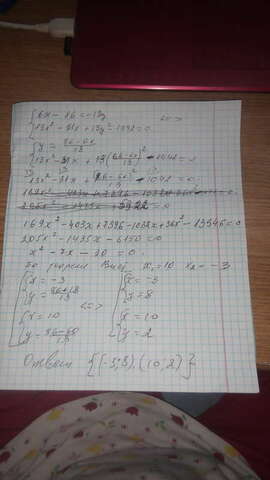 6x - 86 = -13y
13x² - 31x + 13y² - 1042 = 0 <=>
y = (86-6x)/13
13x² - 31x + 13((86-6x)/13)² - 1042 = 0
13x² - 31x + (86-6x)²/13 - 1042 = 0
169x² - 403x + 7396 - 1032x + 36x² - 13546 = 0
205x² - 1435x - 6150 = 0
x² - 7x - 30 = 0
По теореме Виета x₁ = 10 x₂ = -3
x = -3
y = (86+18)/13 <=> x = -3
y = 8
x = 10
y = (86-60)/13 x = 10
y = 2
Ответ {(-3;8),(10;2)}